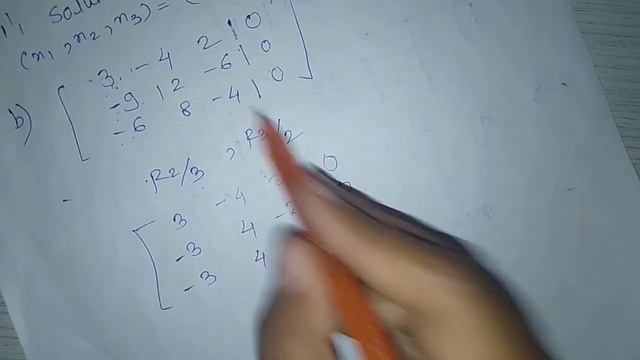 Solu
(x1, x2, x3) = (
b) [ 3 -4 2 | 0
-9 12 -6 | 0
-6 8 -4 | 0 ]
R2/3 , R3/2
[ 3 -4 0
-3 4
-3 4